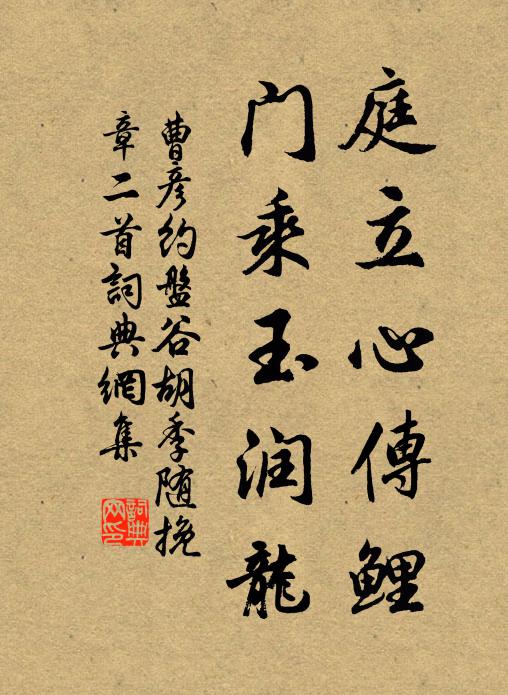 庭立心傳鯉
門乘玉润龍
曹彦約盤谷胡季随挽
章二首詞典網集
詞典网印